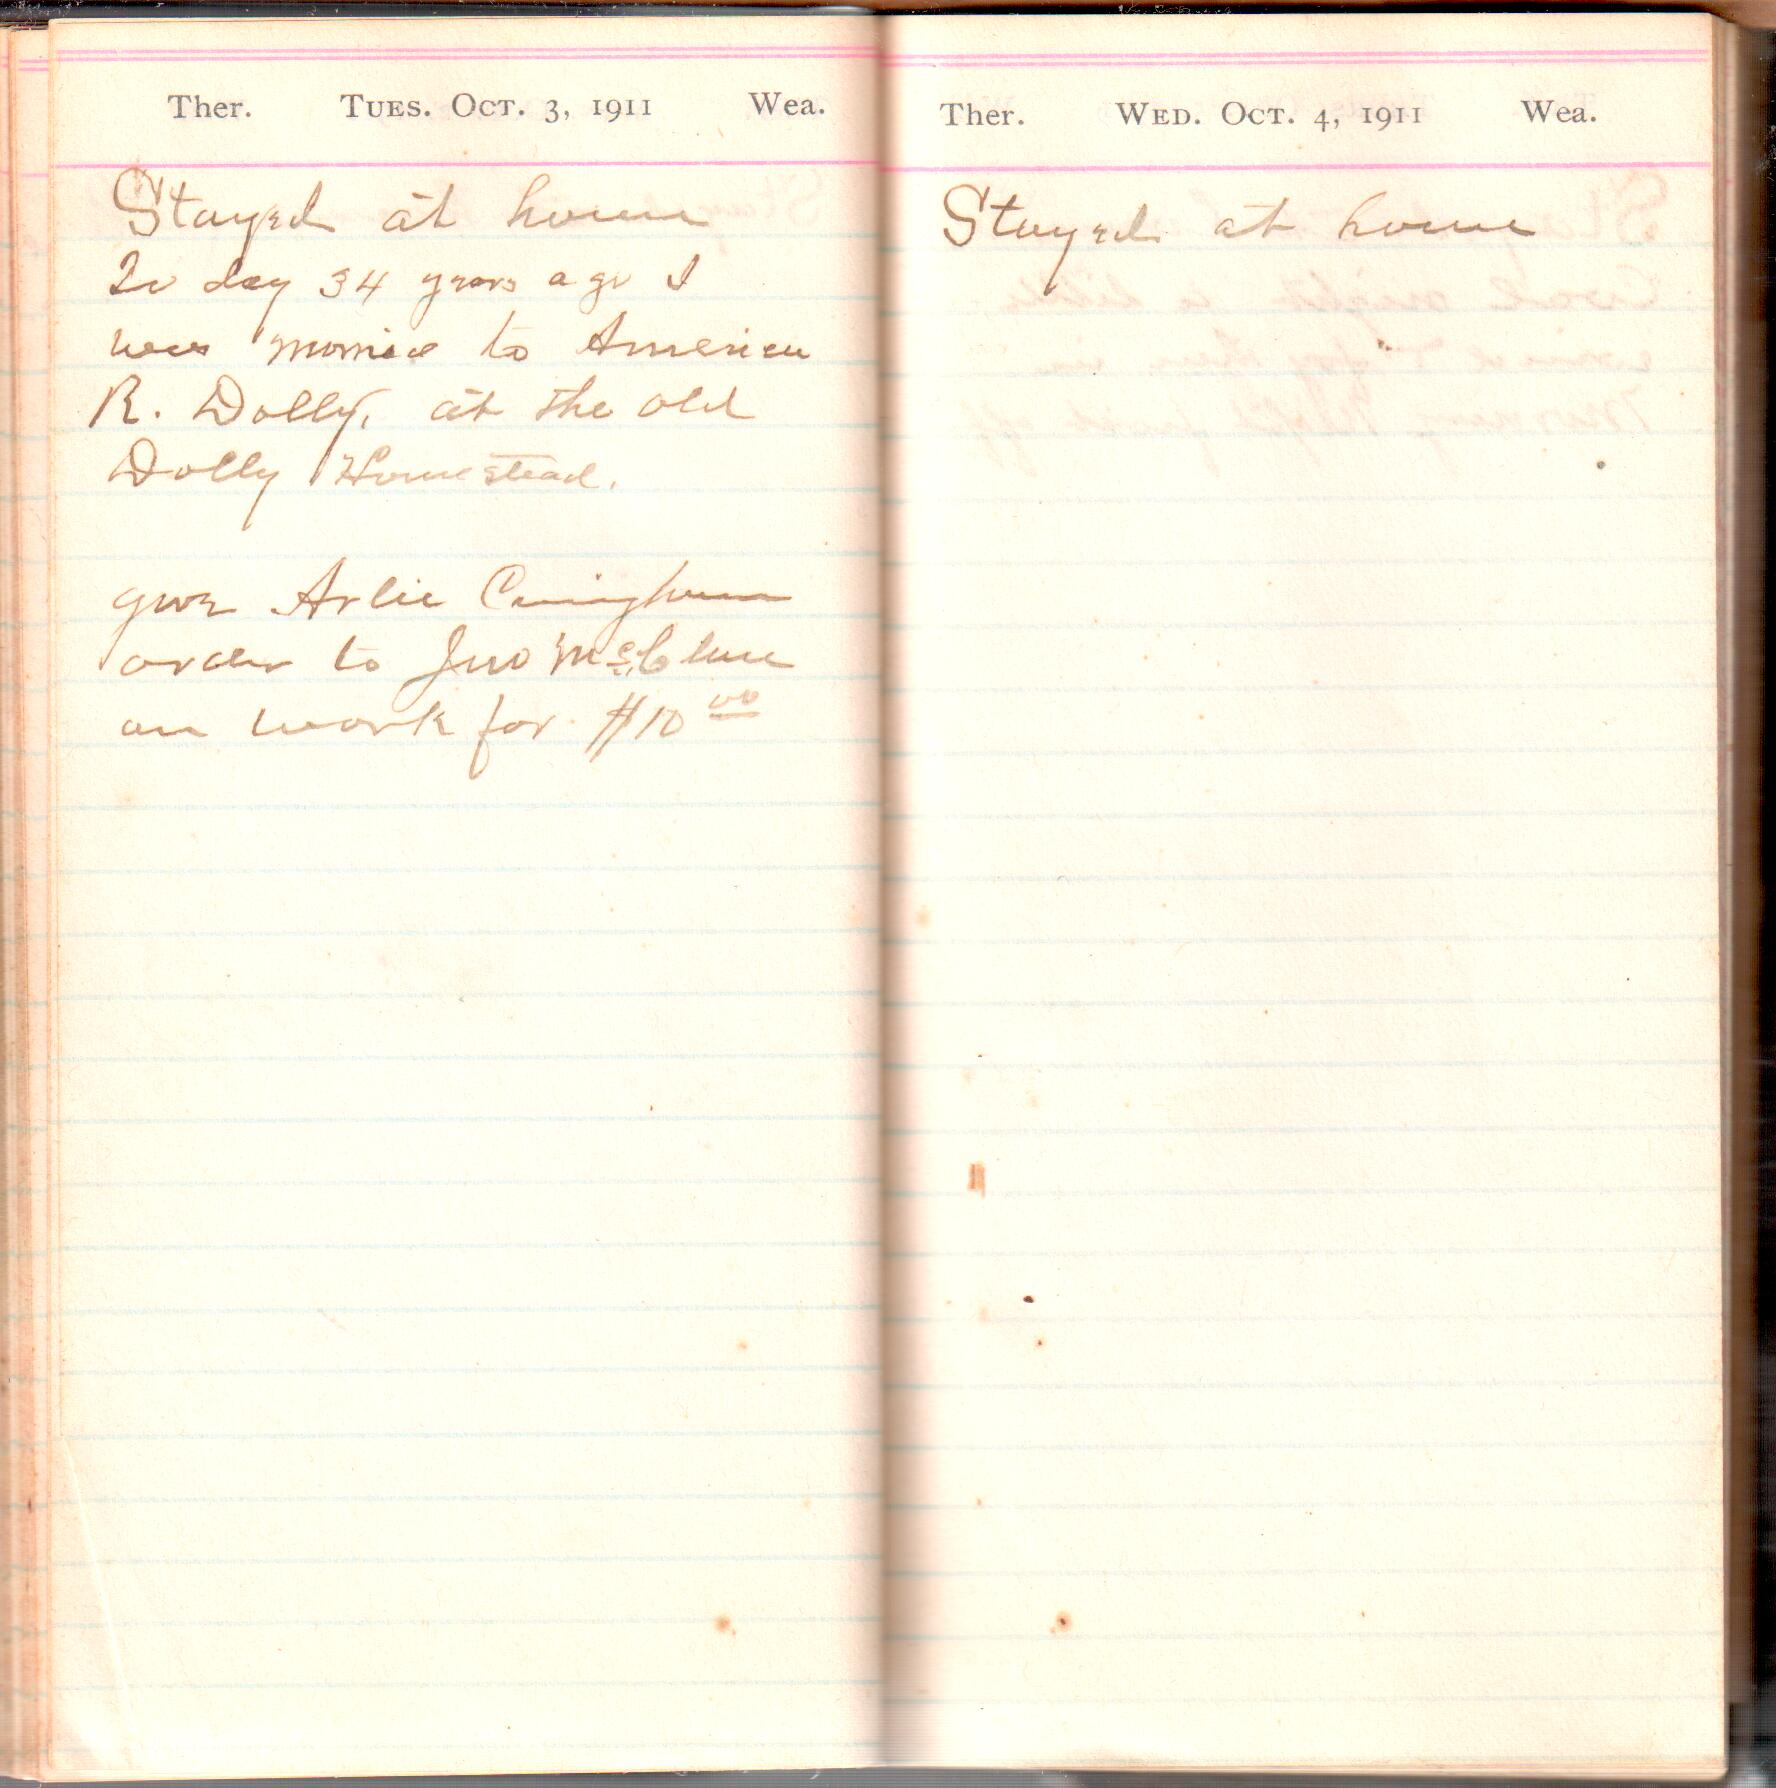 Ther. Tues. Oct. 3, 1911 Wea.
Stayed at home
To day 34 years ago I
was married to America
R. Dolly, at the old
Dolly Homestead.
gave Arlie Cuningham
order to Jno McClure
on work for $10 00
Ther. Wed. Oct. 4, 1911 Wea.
Stayed at home